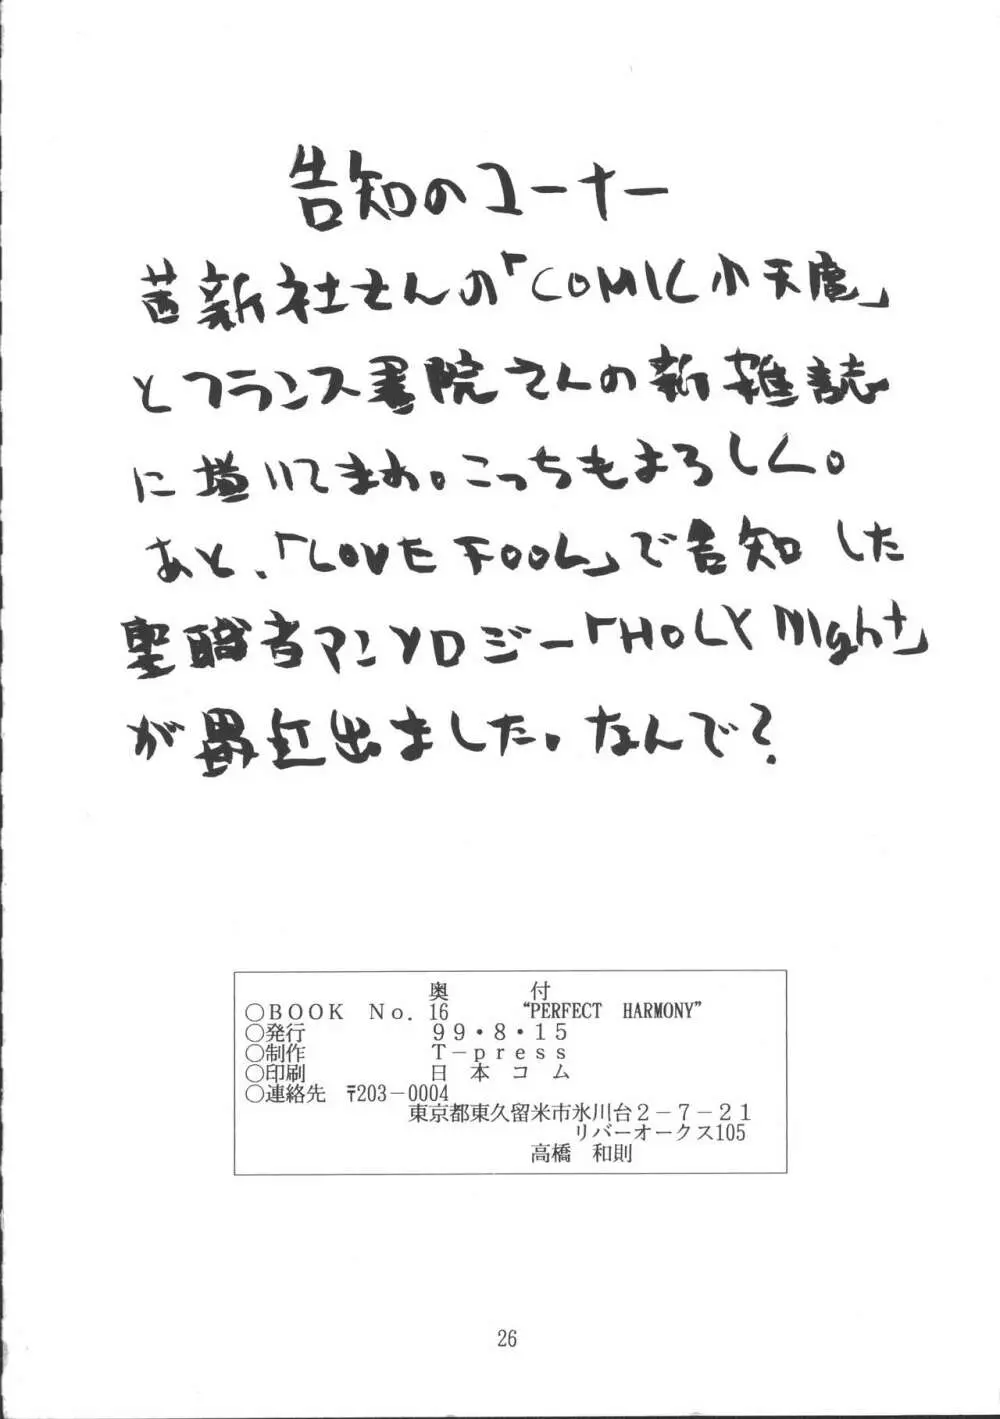 告知のコーナー
茜新社さんの「COMIC小天魔」
とフランス書院さんの新雑誌
に描いてまね。こっちもよろしく。
あと、「LOVE FOOL」で告知した
聖職者アンソロジー「HOLY NIght」
が 出ました。なんで?
奥　付
○BOOK No.16 “PERFECT HARMONY”
○発行 99・8・15
○制作 T-press
○印刷 日本コム
○連絡先 〒203-0004
東京都東久留米市氷川台2-7-21
リバーオークス105
高橋　和則
26